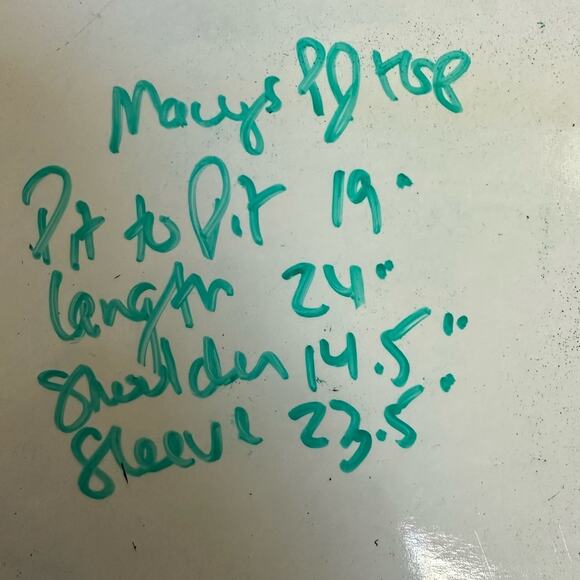 Macys PJ top
Pit to Pit 19"
length 24"
Shoulder 14.5"
Sleeve 23.5"